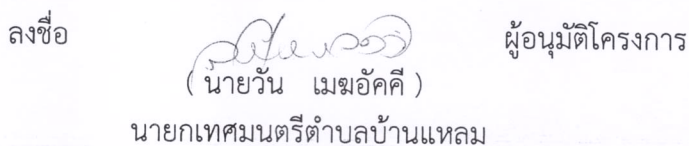 ลงชื่อ ผู้อนุมัติโครงการ
( นายวัน เมฆอัคคี )
นายกเทศมนตรีตำบลบ้านแหลม